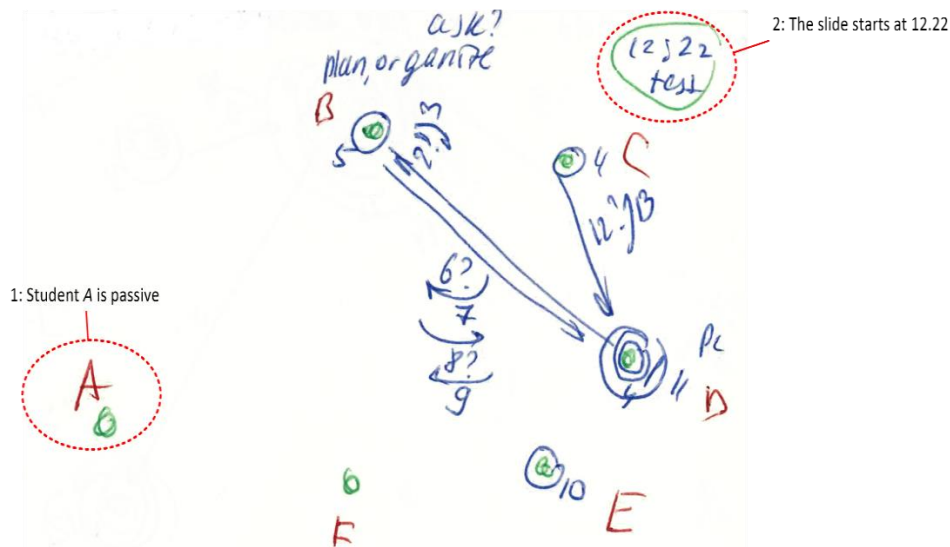 ask?
plan, organize
12;22
2: The slide starts at 12.22
B
5
2?
3
4
C
12?
13
6?
7
8?
9
1: Student A is passive
A
Pc
11
D
10
E
F